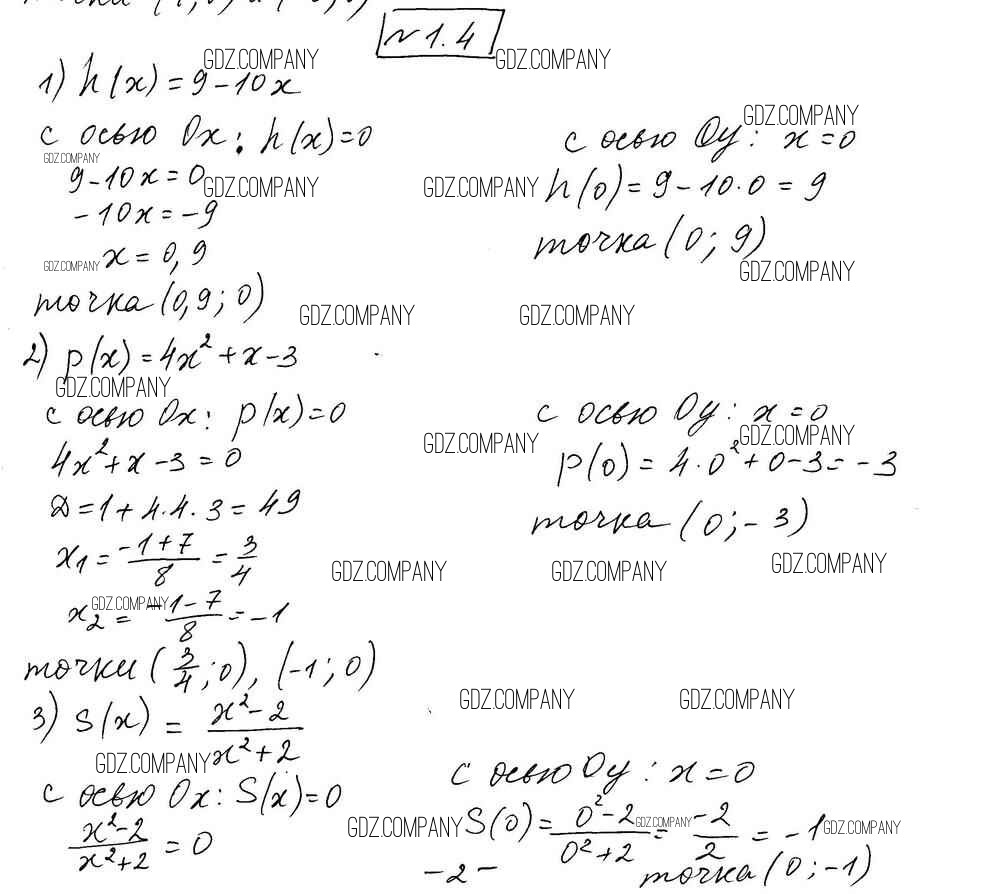 №1.4
GDZ.COMPANY GDZ.COMPANY
1) h(x) = 9 - 10x
GDZ.COMPANY
с осью Ox: h(x) = 0
с осью Oy: x = 0
GDZ.COMPANY
9 - 10x = 0
GDZ.COMPANY GDZ.COMPANY
h(0) = 9 - 10·0 = 9
-10x = -9
точка (0; 9)
x = 0,9
GDZ.COMPANY GDZ.COMPANY
точка (0,9; 0)
GDZ.COMPANY GDZ.COMPANY
2) p(x) = 4x² + x - 3
GDZ.COMPANY
с осью Ox: p(x) = 0
с осью Oy: x = 0
GDZ.COMPANY GDZ.COMPANY
4x² + x - 3 = 0
p(0) = 4·0² + 0 - 3 = -3
D = 1 + 4·4·3 = 49
точка (0; -3)
x₁ = (-1+7)/8 = 3/4
GDZ.COMPANY GDZ.COMPANY GDZ.COMPANY
GDZ.COMPANY
x₂ = (-1-7)/8 = -1
точки (3/4; 0), (-1; 0)
GDZ.COMPANY GDZ.COMPANY
3) S(x) = (x²-2)/(x²+2)
GDZ.COMPANY
с осью Ox: S(x) = 0
с осью Oy: x = 0
(x²-2)/(x²+2) = 0
GDZ.COMPANY GDZ.COMPANY GDZ.COMPANY
S(0) = (0²-2)/(0²+2) = -2/2 = -1
точка (0; -1)
-2-